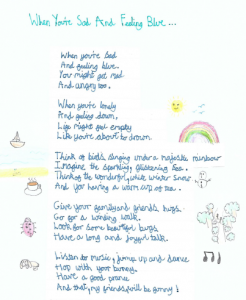 When You're Sad And Feeling Blue...
When you're Sad
And feeling blue.
You might get mad
And angry too.
When you're lonely
And feeling down,
Life might feel empty
Like you're about to drown.
Think of birds, singing under a majestic rainbow
Imagine the sparkling, glistening sea.
Think of the wonderful, white winter snow.
And you having a warm cup of tea.
Give your family and friends hugs.
Go for a winding walk.
Look for some beautiful bugs,
Have a long and joyful talk.
Listen to music, jump up and dance
Hop with your bunny.
Have a good prance
And that, my friends will be funny!